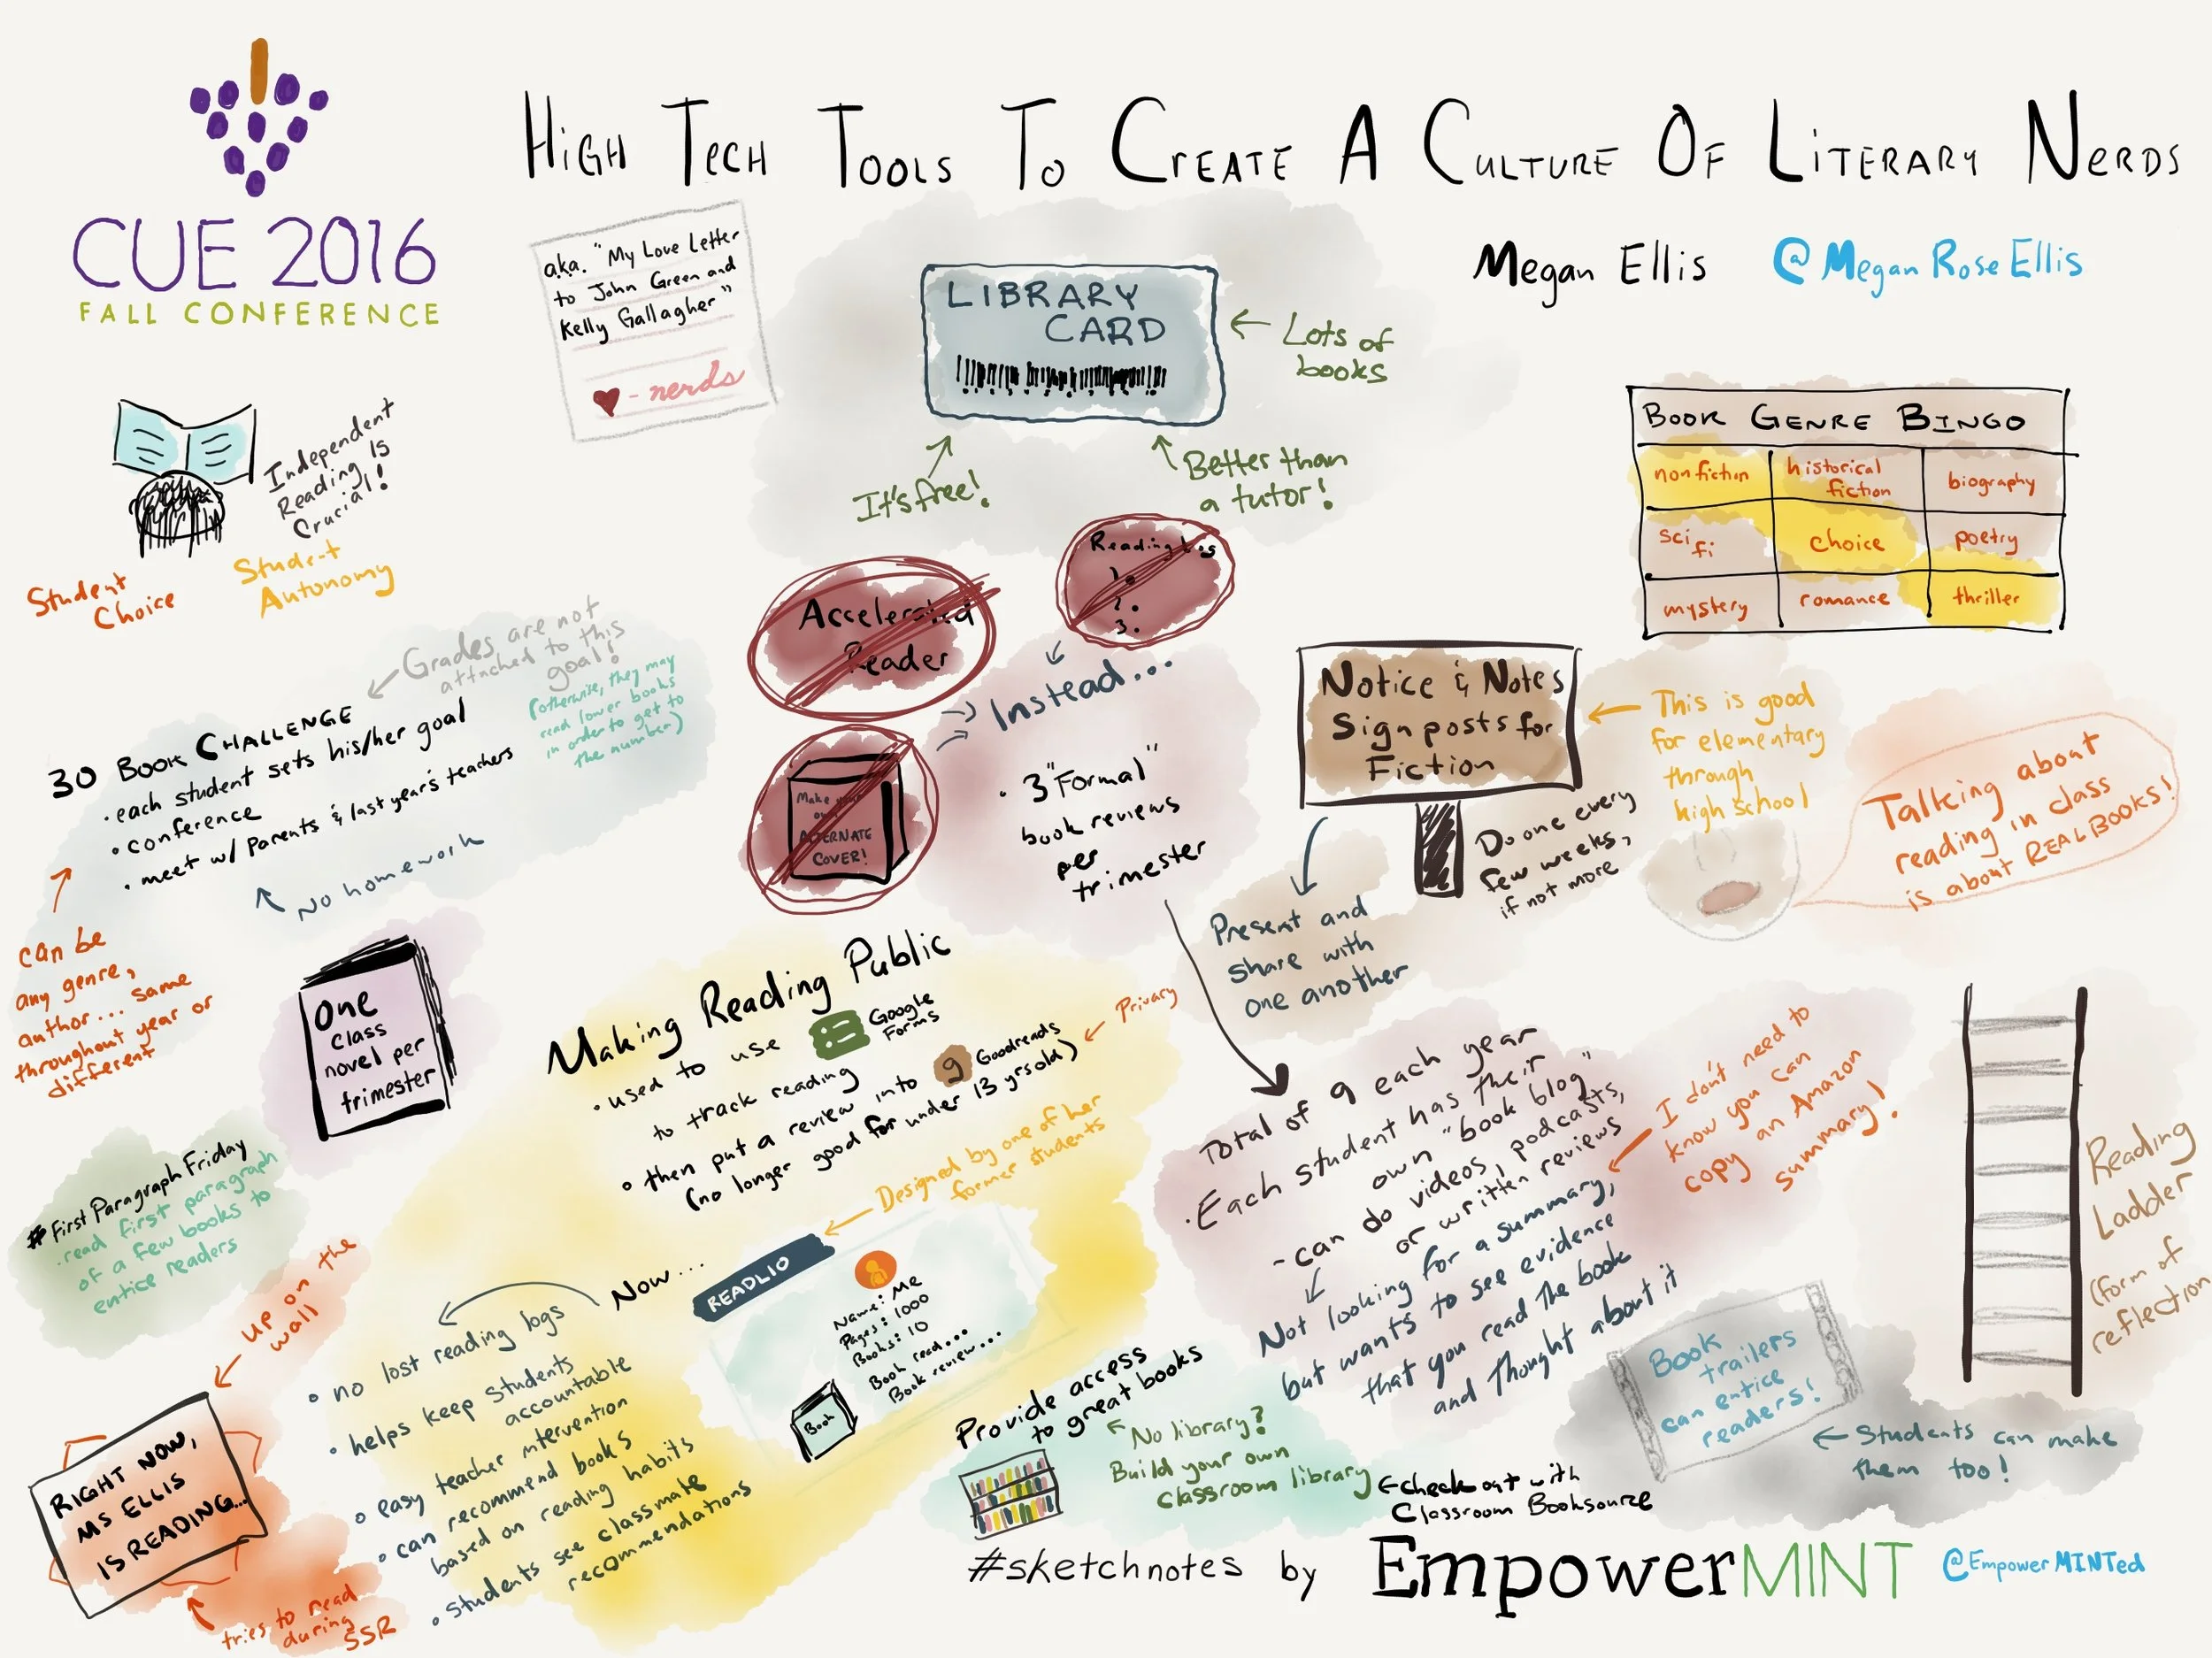 CUE 2016
FALL CONFERENCE
HIGH TECH TOOLS TO CREATE A CULTURE OF LITERARY NERDS
Megan Ellis @MeganRoseEllis
aka. "My Love Letter
to John Green and
Kelly Gallagher"
- nerds
LIBRARY
CARD
Lots of
books
It's free!
Better than
a tutor!
Independent
Reading is
Crucial!
Student
Choice
Student
Autonomy
BOOK GENRE BINGO
nonfiction
historical
fiction
biography
sci
fi
choice
poetry
mystery
romance
thriller
Accelerated
Reader
Reading Log
1.
2.
3.
Make your
own
ALTERNATE
COVER!
Instead...
• 3 "Formal"
book reviews
per
trimester
Notice & Notes
Signposts for
Fiction
This is good
for elementary
through
high school
Do one every
few weeks,
if not more
Present and
share with
one another
Talking about
reading in class
is about REAL BOOKS!
Grades are not
attached to this
goal!
(otherwise, they may
read lower books
in order to get to
the number)
30 BOOK CHALLENGE
• each student sets his/her goal
• conference
• meet w/ parents & last year's teachers
No homework
can be
any genre,
author... same
throughout year or
different
One
class
novel per
trimester
#FirstParagraphFriday
- read first paragraph
of a few books to
entice readers
Making Reading Public
• used to use Google
Forms
to track reading
• then put a review into g Goodreads
(no longer good for under 13 yrs old)
Privacy
Designed by one of her
former students
Now...
READLIO
Name: Me
Pages: 1000
Books: 10
Book read...
Book review...
Book
• no lost reading logs
• helps keep students
accountable
• easy teacher intervention
• can recommend books
based on reading habits
• students see classmate
recommendations
up on the
wall
RIGHT NOW,
MS ELLIS
IS READING...
tries to read
during
SSR
Total of 9 each year
• Each student has their
own "book blog"
- can do videos, podcasts,
or written reviews
Not looking for a summary,
but wants to see evidence
that you read the book
and thought about it
I don't need to
know you can
copy an Amazon
summary!
Reading
Ladder
(form of
reflection)
Book
trailers
can entice
readers!
Students can make
them too!
Provide access
to great books
No library?
Build your own
classroom library
check out with
Classroom Booksource
#sketchnotes by EmpowerMINT @EmpowerMINTed